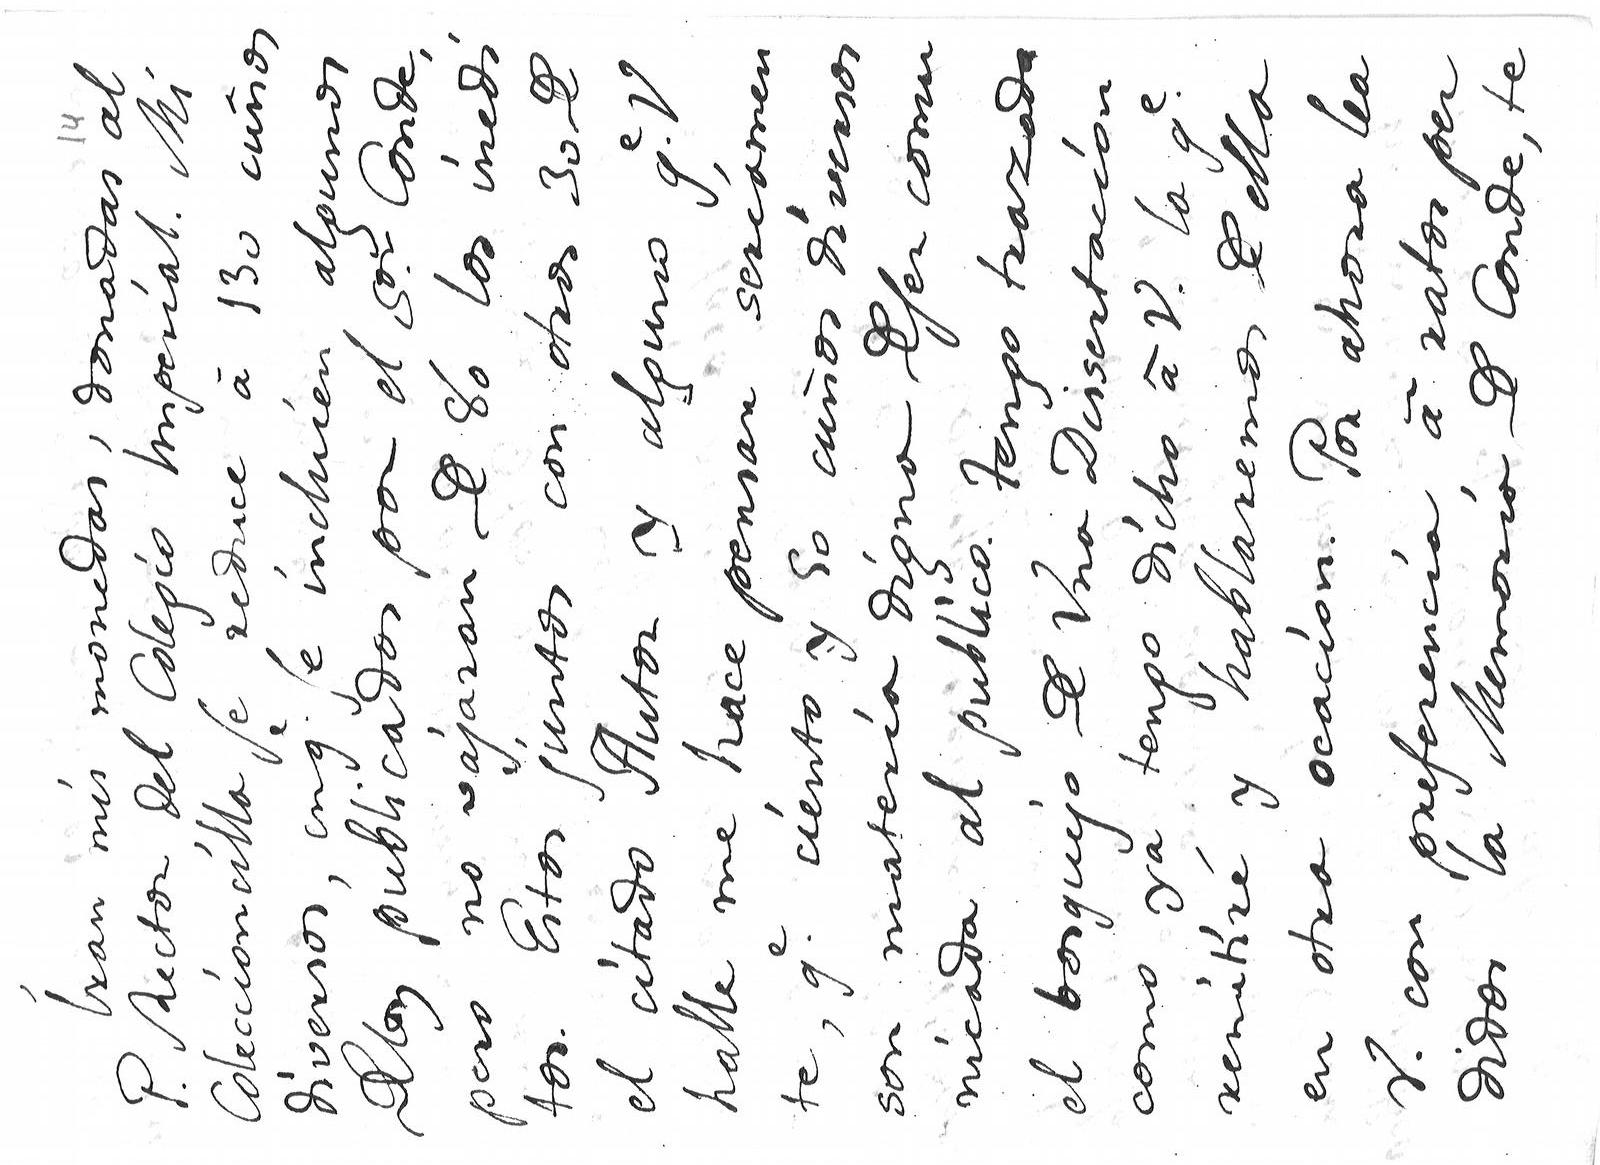 14
Iran mis monedas, donadas al
P. Rector del Colegio Imperial. Mi
Coleccioncilla se reduce à 130 cuños
diversos, inq.e se inclúien algunos
Dlos publicados por el Sõr Conde,
pero no vajaran De 80 los inedi
tos. Estos juntos con otros 30 De
el citado Autor y alguno q.e V
halle me hace pensar seriamen
te, q.e ciento y 50 cuños diversos
son materia digna De ser comu
nicada al publico. Tengo trazado
el bosquejo De Vna Dissertacion
como ya tengo dicho à V. la q.e
remitiré y hablaremos De ella
en otra ocacion. Por ahora lea
V. con preferencia à ratos per
didos la Memoria De Conde, te